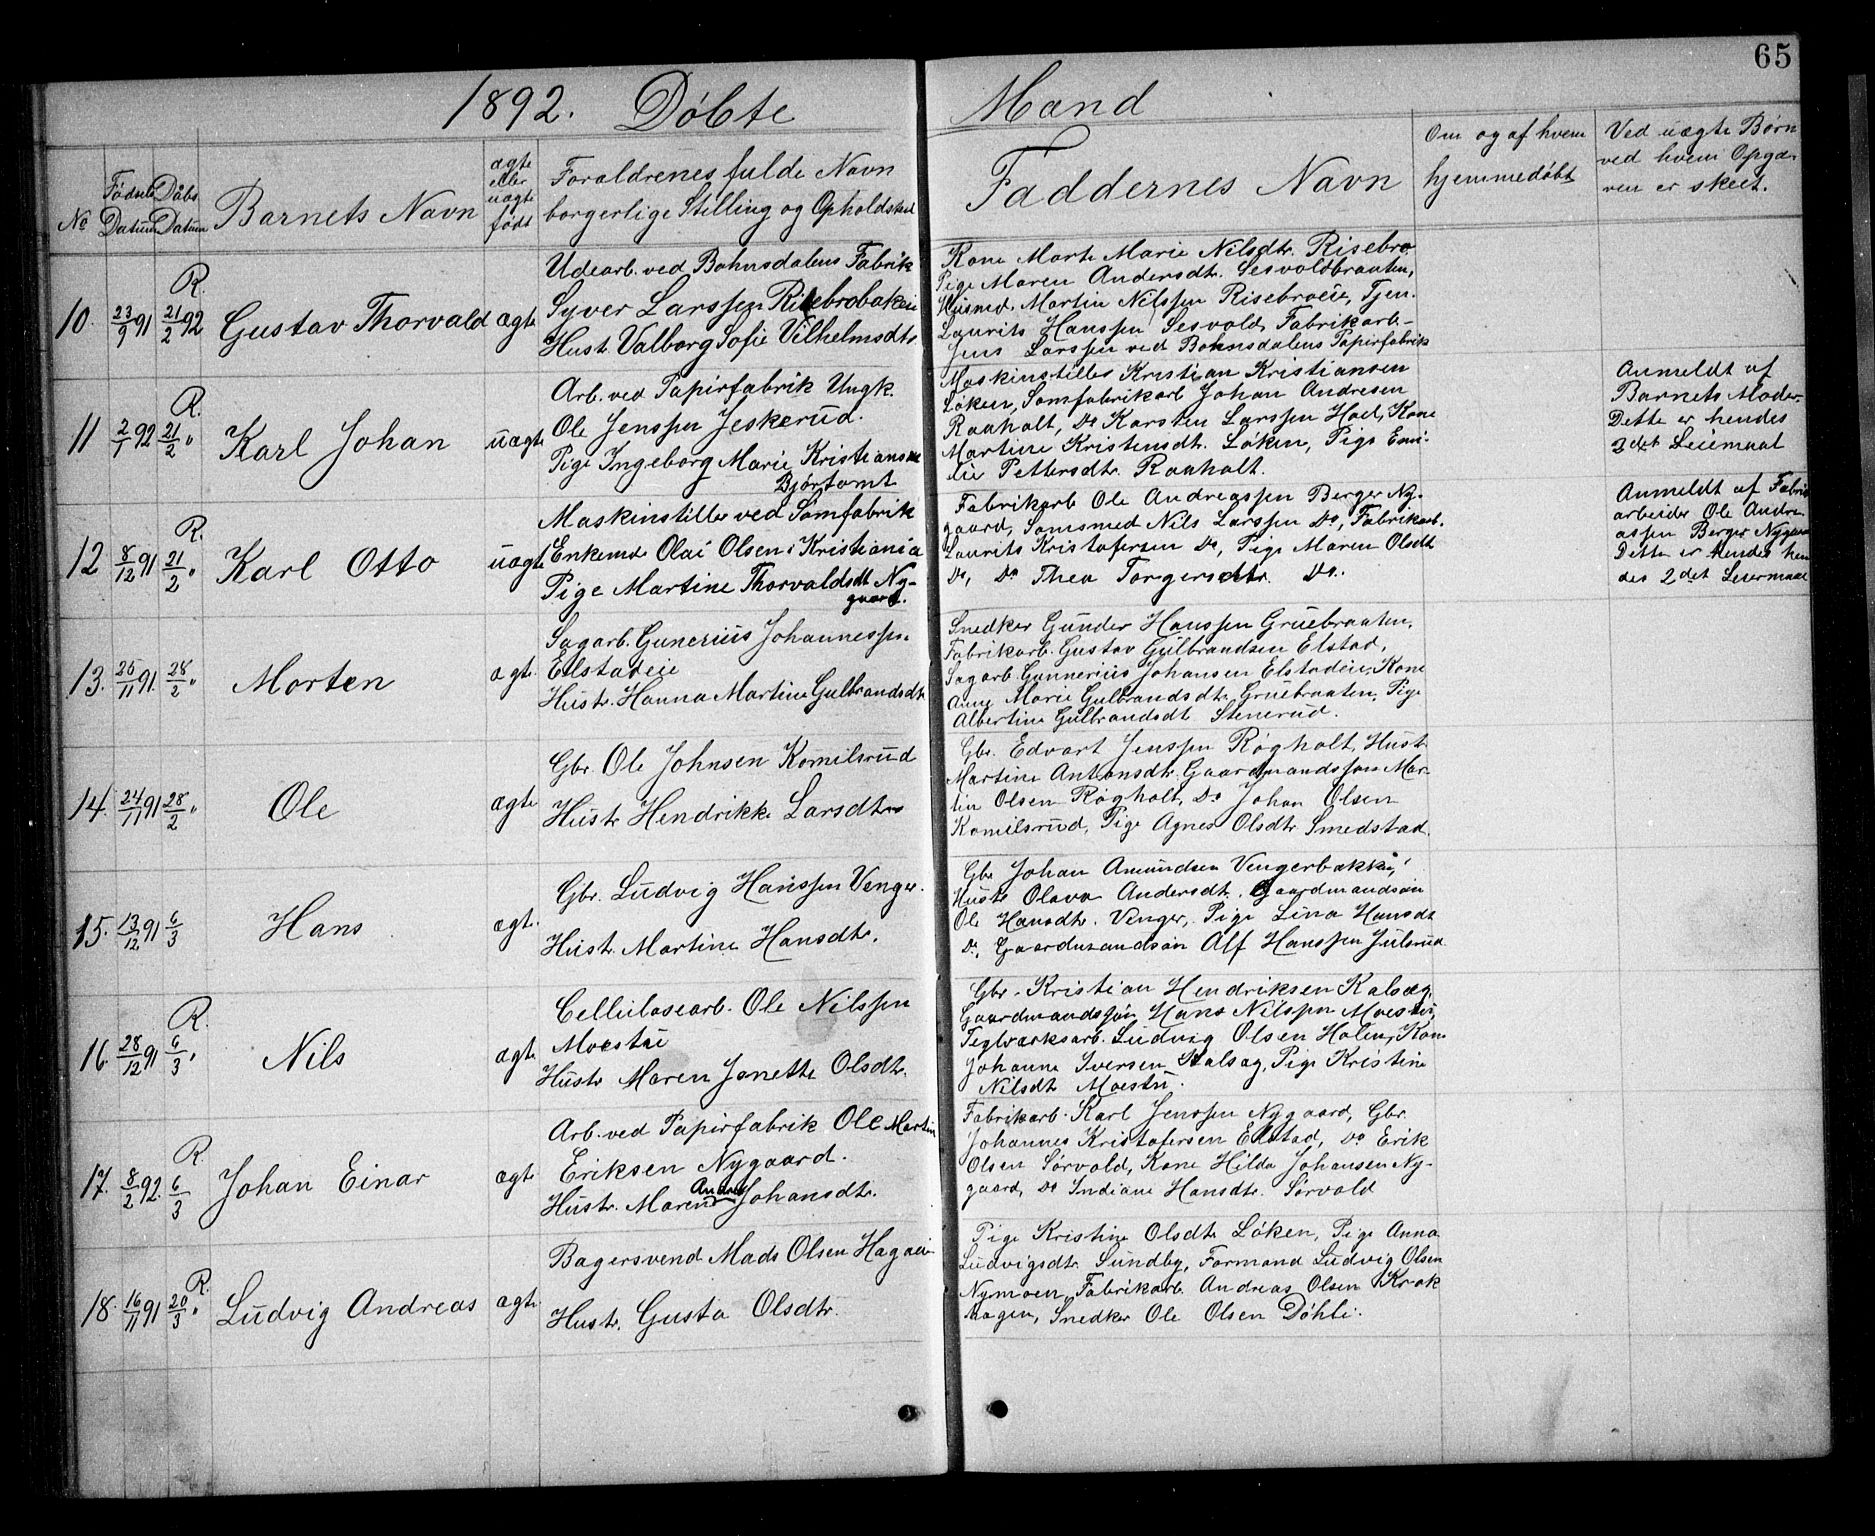 65
1892. Döbte Mænd
No
Födsels Datum
Daabs Datum
Barnets Navn
ægte eller uægte födt
Foraldrenes fulde Navn
borgerlige Stilling og Opholdsted
Faddernes Navn
Om og af hvem
hjemmedöbt
Ved uægte Börn
ved hvem Opga-
ven er skeet.
10. 23/9 91 R. 21/2 92 Gustav Thorvald ægte
Udearb. ved Bohnsdalens Fabrik
Syver Larssen Risebrobakeie
Hust. Valborg Sofie Vilhelmsdtr
Kone Marte Marie Nilsdtr. Risebro
Pige Maren Andersdtr. Sesvoldbraaten,
Husmd. Martin Nilssen Risebroeie, Tjen.
Laurits Hanssen Sesvold, Fabrikarb-
Jens Larssen ved Bohnsdalens Papirfabrik
11 2/1 92 R. 21/2 " Karl Johan uægte
Arb. ved Papirfabrik Ungk.
Ole Jenssen Jeskerud.
Pige Ingeborg Marie Kristiansen
Björtomt
Maskinstiller Kristian Kristiansen
Löken, Somfabrikarb Johan Andresen
Raaholt, Do Karsten Larssen Hoel, Kone
Martine Kristensdt. Löken, Pige Emi-
lie Pettersdtr. Raaholt.
Anmeldt af
Barnets Moder
Dette er hendes
3det Leiemaal
12 8/12 91 R. 21/2 " Karl Otto uægte
Maskinstiller ved Sömfabrik
Enkemd. Olai Olsen i Kristiania
Pige Martine Thorvaldsdt Ny-
gaard.
Fabrikarb Ole Andreassen Berger Ny-
gaard, Somsmed Nils Larssen Do, Fabrikarb.
Laurits Kristofersen Do, Pige Maren Olsdt
Do, Do Thea Torgersdtr. Do.
Anmeldt af Fabrik
arbeider Ole Andre-
assen Berger Nygaard
Dette er hendes hen
des 2det Leiermaal
13. 25/11 91. 28/2 " Morten ægte
Sagarb. Gunerius Johannessen
Elstadeie
Hustr. Hanna Martine Gulbrandsdt
Snedker Gunder Hanssen Gruebraaten,
Fabrikarb. Gustav Gulbrandsen Elstad,
Sagarb. Gunnerius Johansen Elstadeie, Kone
Anne Marie Gulbrandsdtr. Gruebraaten, Pige
Albertine Gulbrandsdt Stenerud.
14. 24/11 91 28/2 " Ole ægte
Gbr. Ole Johnsen Komilsrud
Hustr Hendrikke Larsdtr
Gbr. Edvart Jenssen Rögholt, Hustr
Martine Antonsdtr. Gaardmandssön Mar-
tin Olsen Rögholt, Do Johan Olsen
Komilsrud, Pige Agnes Olsdtr Smedstad.
15. 13/12 91 6/3 Hans ægt.
Gbr. Ludvig Hanssen Venger.
Hust. Martine Hansdtr.
Gbr Johan Amundsen Vengerbakken,
Hustr Olava Andersdt. Gaardmandsön
Ole Hansdtr. Venger, Pige Lina Hansdt
Do, Gaardmandsön Alf Hanssen Julsrud
16. 28/12 91 R. 6/3 " Nils ægte
Cellulosearb. Ole Nilssen
Moestu
Hustr Maren Janette Olsdtr.
Gbr. Kristian Hendriksen Kalsæg,
Gaardmandssön Hans Nilssen Moestu,
Teglværksarb. Ludvig Olsen Holen, Kone
Johanne Iversen Kalsæg, Pige Kristine
Nilsdt Moestu.
17. 8/2 92. R. 6/3 Johan Einar ægte
Arb. ved Papirfabrik Ole Martin
Eriksen Nygaard.
Hustr. Maren Andrea Johansdtr.
Fabrikarb. Karl Jenssen Nygaard, Gbr.
Johannes Kristofersen Elstad, Do Erik
Olsen Sörvold, Kone Hilda Johansen Ny-
gaard, Do Indiane Hansdtr. Sörvold
18. 16/11 91 R. 20/3 " Ludvig Andreas ægte
Bagersvend Mads Olsen Hagaeie
Hustr. Gusta Olsdtr.
Pige Kristine Olsdtr Löken, Pige Anna
Ludvigsdtr. Sundby, Formand Ludvig Olsen
Nymoen, Fabrikarb. Andreas Olsen Krok
hagen, Snedker Ole Olsen Döhli.